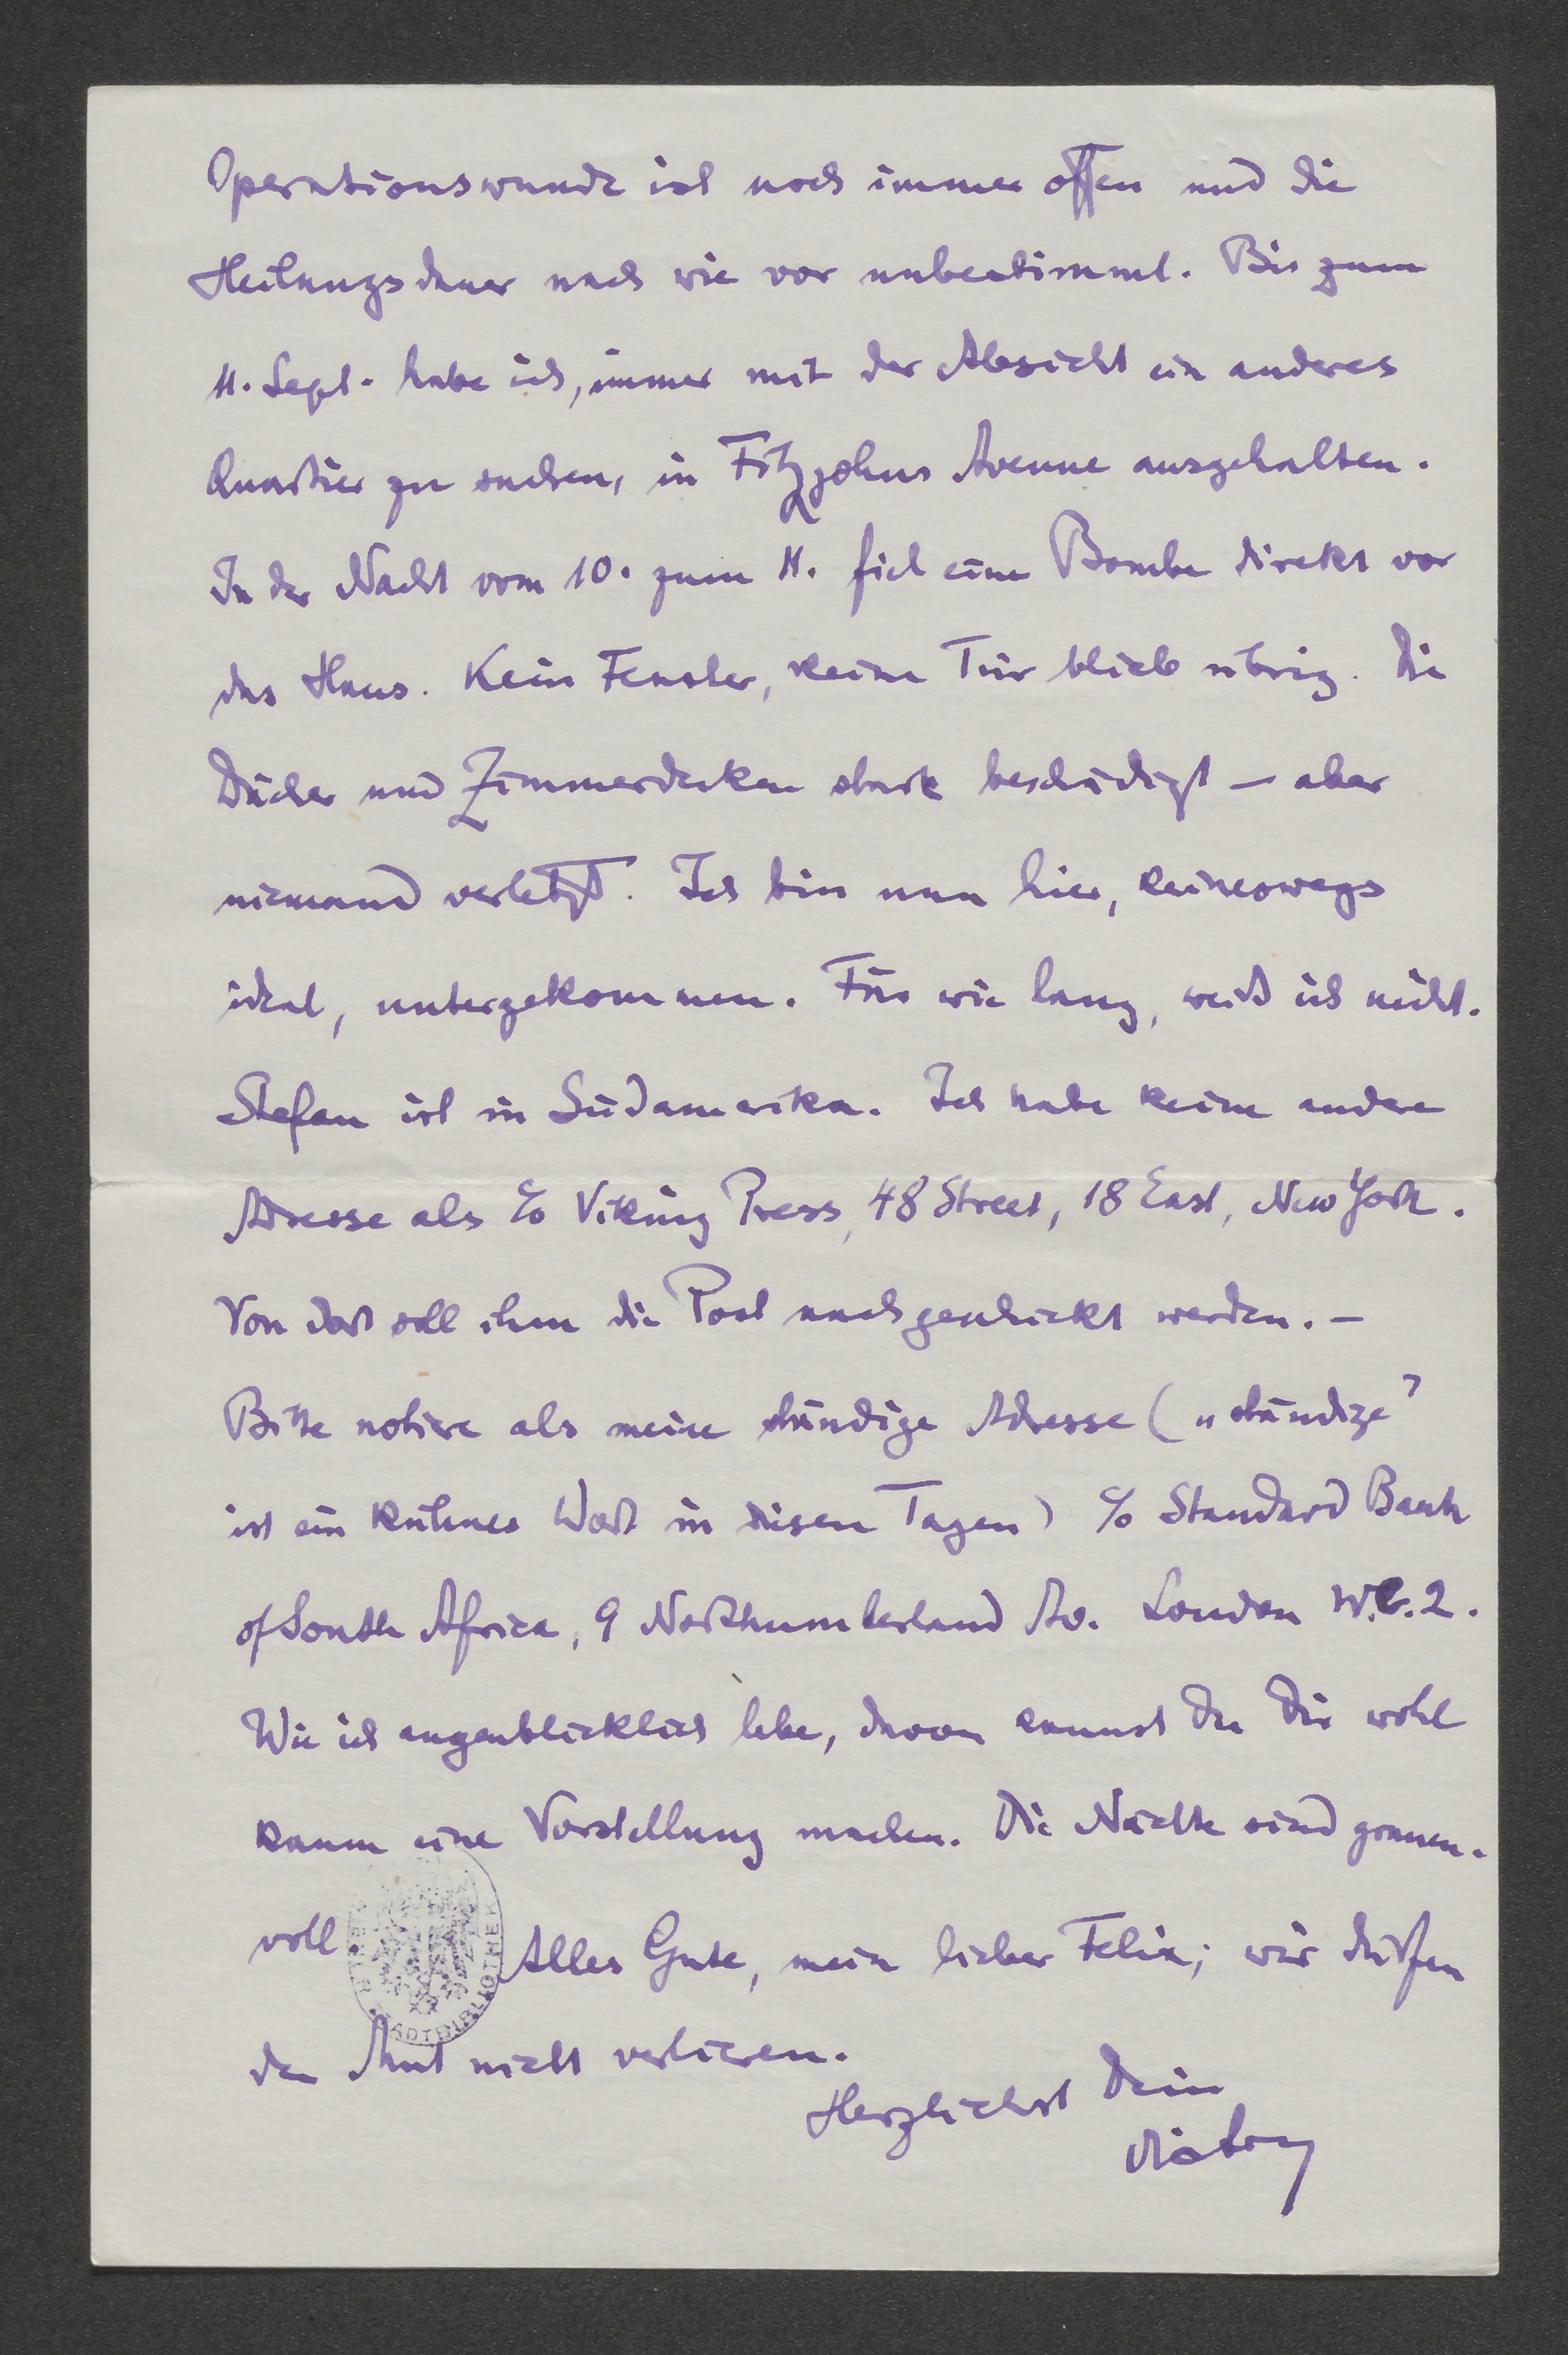 Operationswunde ist noch immer offen und die
Heilungsdauer nach wie vor unbestimmt. Bis zum
11. Sept. habe ich, immer mit der Absicht ein anderes
Quartier zu suchen, in Fitzjohns Avenue ausgehalten.
In der Nacht vom 10. zum 11. fiel eine Bombe direkt vor
das Haus. Kein Fenster, keine Tür blieb übrig. Die
Dächer und Zimmerdecken stark beschädigt – aber
niemand verletzt. Ich bin nun hier, keineswegs
ideal, untergekommen. Für wie lang, weiß ich nicht.
Stefan ist in Südamerika. Ich habe keine andere
Adresse als c/o Viking Press, 48 Street, 18 East, New York.
Von dort soll ihm die Post nachgeschickt werden. –
Bitte notiere als meine ständige Adresse („ständige”
ist ein kühnes Wort in diesen Tagen) c/o Standard Bank
of South Africa, 9 Northumberland Av. London W.C.2.
Wie ich augenblicklich lebe, davon kannst Du Dir wohl
kaum eine Vorstellung machen. Die Nächte sind grauen-
voll. Alles Gute, mein lieber Felix; wir dürfen
den Mut nicht verlieren.
Herzlichst Dein
Viktor
STADTBIBLIOTHEK